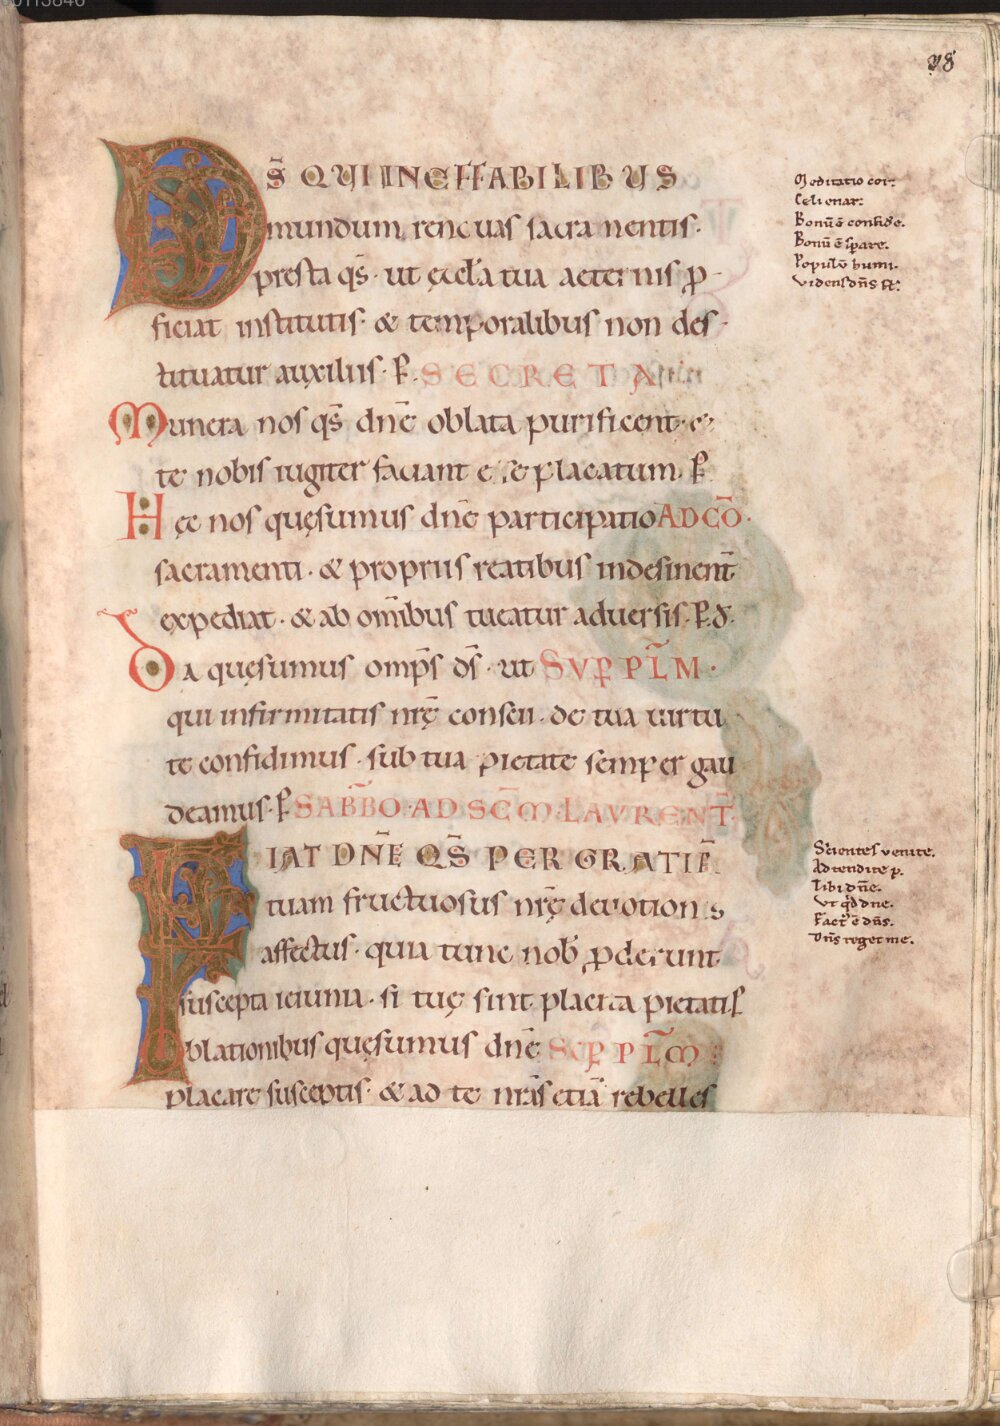 28
DS̄ QUI INEFFABILIBUS
mundum renouas sacramentis·
presta qs̄· ut ęccła tua aeternis ꝓ-
ficiat institutis· & temporalibus non des-
tituatur auxiliis· P̱. SECRETA
Munera nos qs̄ dn̄e oblata purificent· &
te nobis iugiter faciant esse placatum. P̱
Hęc nos quęsumus dn̄e participatio AD CŌ·
sacramenti· & propriis reatibus indesinent̄
expediat· & ab om̄ibus tueatur aduersis· P̱. d̄·
Da quęsumus omp̄s ds̄· ut SUP̱ PL̄M·
qui infirmitatis nrę̄ conscii· de tua uirtu
te confidimus· sub tua pietate semper gau
deamus· P̱ SABB̄O· AD SC̄M· LAURENT̄·
FIAT DN̄E QS̄ PER GRATIĒ
tuam fructuosus nrę̄ deuotionis
affectus· quia tunc nob̄ ꝓderunt
suscepta ieiunia· si tuę sint placita pietatis
Oblationibus quęsumus dn̄e SUP̱ PL̄M
placare susceptis· & ad te nr̄as etiā rebelles
Meditatio cor:
Celi enar:
Bonū ē confide.
Bonū ē sꝑare.
Populū humi.
Videns dn̄s fł:
Sitientes venite.
Adtendite p.
Tibi dn̄e.
Vt qd̄ dne.
Fact' ē dn̄s.
Dn̄s reget me.